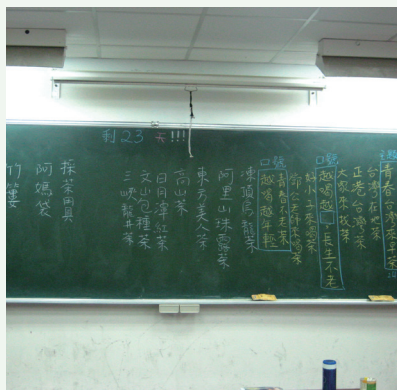 剩23天!!!
青春台灣茶
台灣在地茶
正港台灣茶
大家來找茶
口號
越喝越 ,長生不老
好小子來喝茶
來喝茶
口號
青春不老茶
越喝越年輕
凍頂烏龍茶
阿里山珠露茶
東方美人茶
高山茶
日月潭紅茶
文山包種茶
三峽龍井茶
採茶用具
阿嬤袋
竹簍